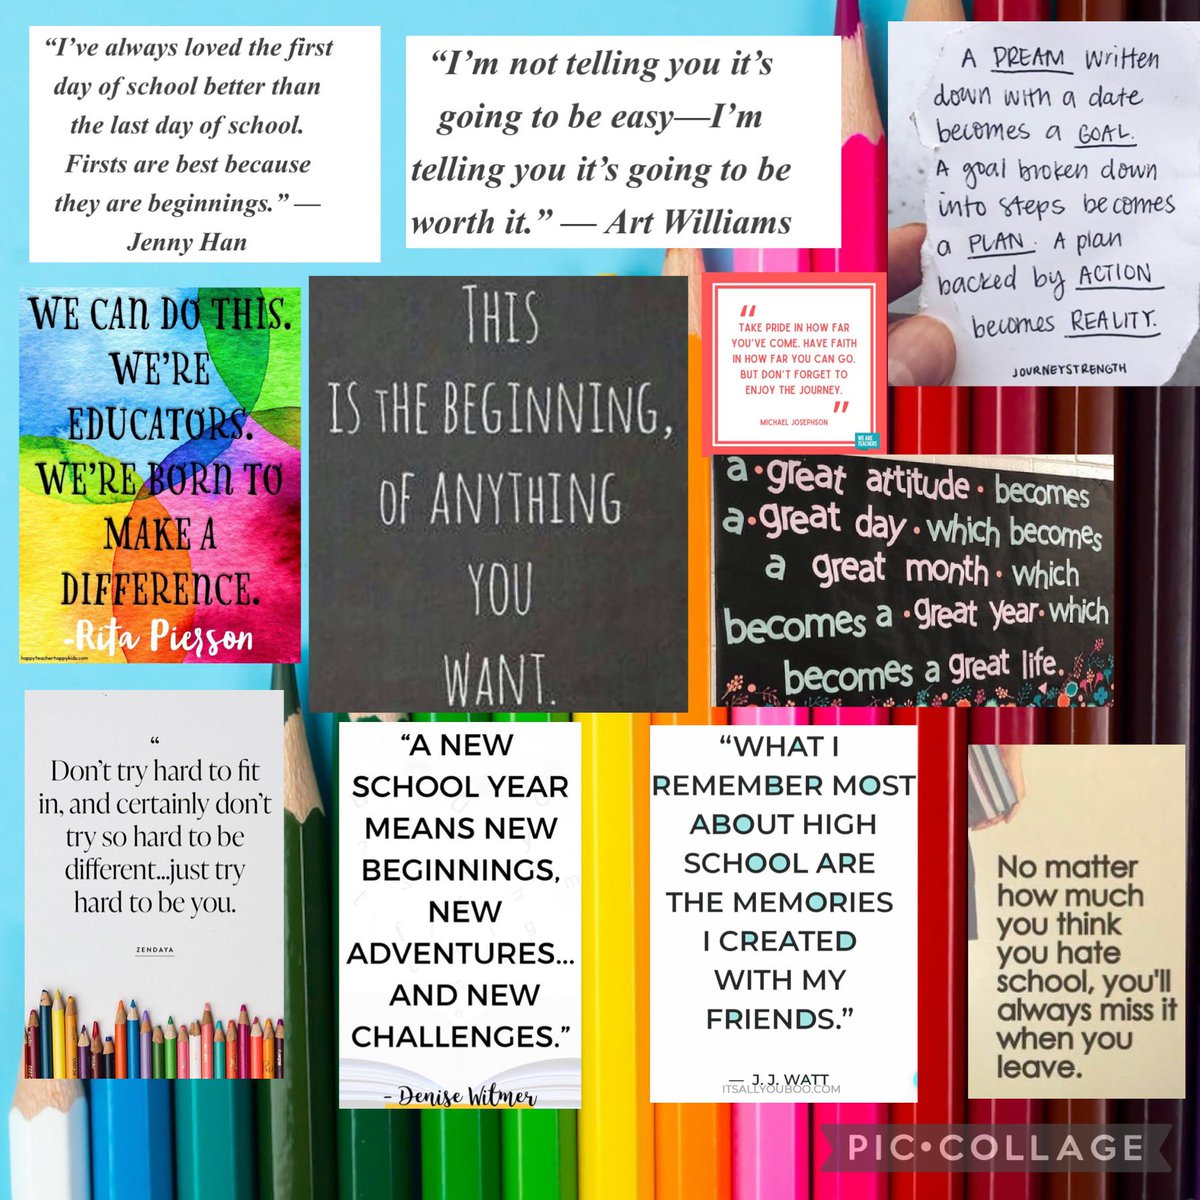 “I’ve always loved the first
day of school better than
the last day of school.
Firsts are best because
they are beginnings.” —
Jenny Han
“I’m not telling you it’s
going to be easy—I’m
telling you it’s going to be
worth it.” — Art Williams
A DREAM written
down with a date
becomes a GOAL.
A goal broken down
into steps becomes
a PLAN. A plan
backed by ACTION
becomes REALITY.
JOURNEYSTRENGTH
WE CAN DO THIS.
WE’RE
EDUCATORS.
WE’RE BORN TO
MAKE A
DIFFERENCE.
-Rita Pierson
happyteacherhappykids.com
THIS
IS tHE BEGINNING,
OF ANYTHING
YOU
WANT.
“
TAKE PRIDE IN HOW FAR
YOU’VE COME. HAVE FAITH
IN HOW FAR YOU CAN GO.
BUT DON’T FORGET TO
ENJOY THE JOURNEY.
”
MICHAEL JOSEPHSON
WE ARE
TEACHERS
a•great attitude• becomes
a•great day•which becomes
a great month•which
becomes a •great year•which
becomes a great life.
“
Don’t try hard to fit
in, and certainly don’t
try so hard to be
different...just try
hard to be you.
ZENDAYA
“A NEW
SCHOOL YEAR
MEANS NEW
BEGINNINGS,
NEW
ADVENTURES...
AND NEW
CHALLENGES.”
- Denise Witmer
“WHAT I
REMEMBER MOST
ABOUT HIGH
SCHOOL ARE
THE MEMORIES
I CREATED
WITH MY
FRIENDS.”
— J.J. WATT
ITSALLYOUBOO.COM
No matter
how much
you think
you hate
school, you'll
always miss it
when you
leave.
PIC•COLLAGE